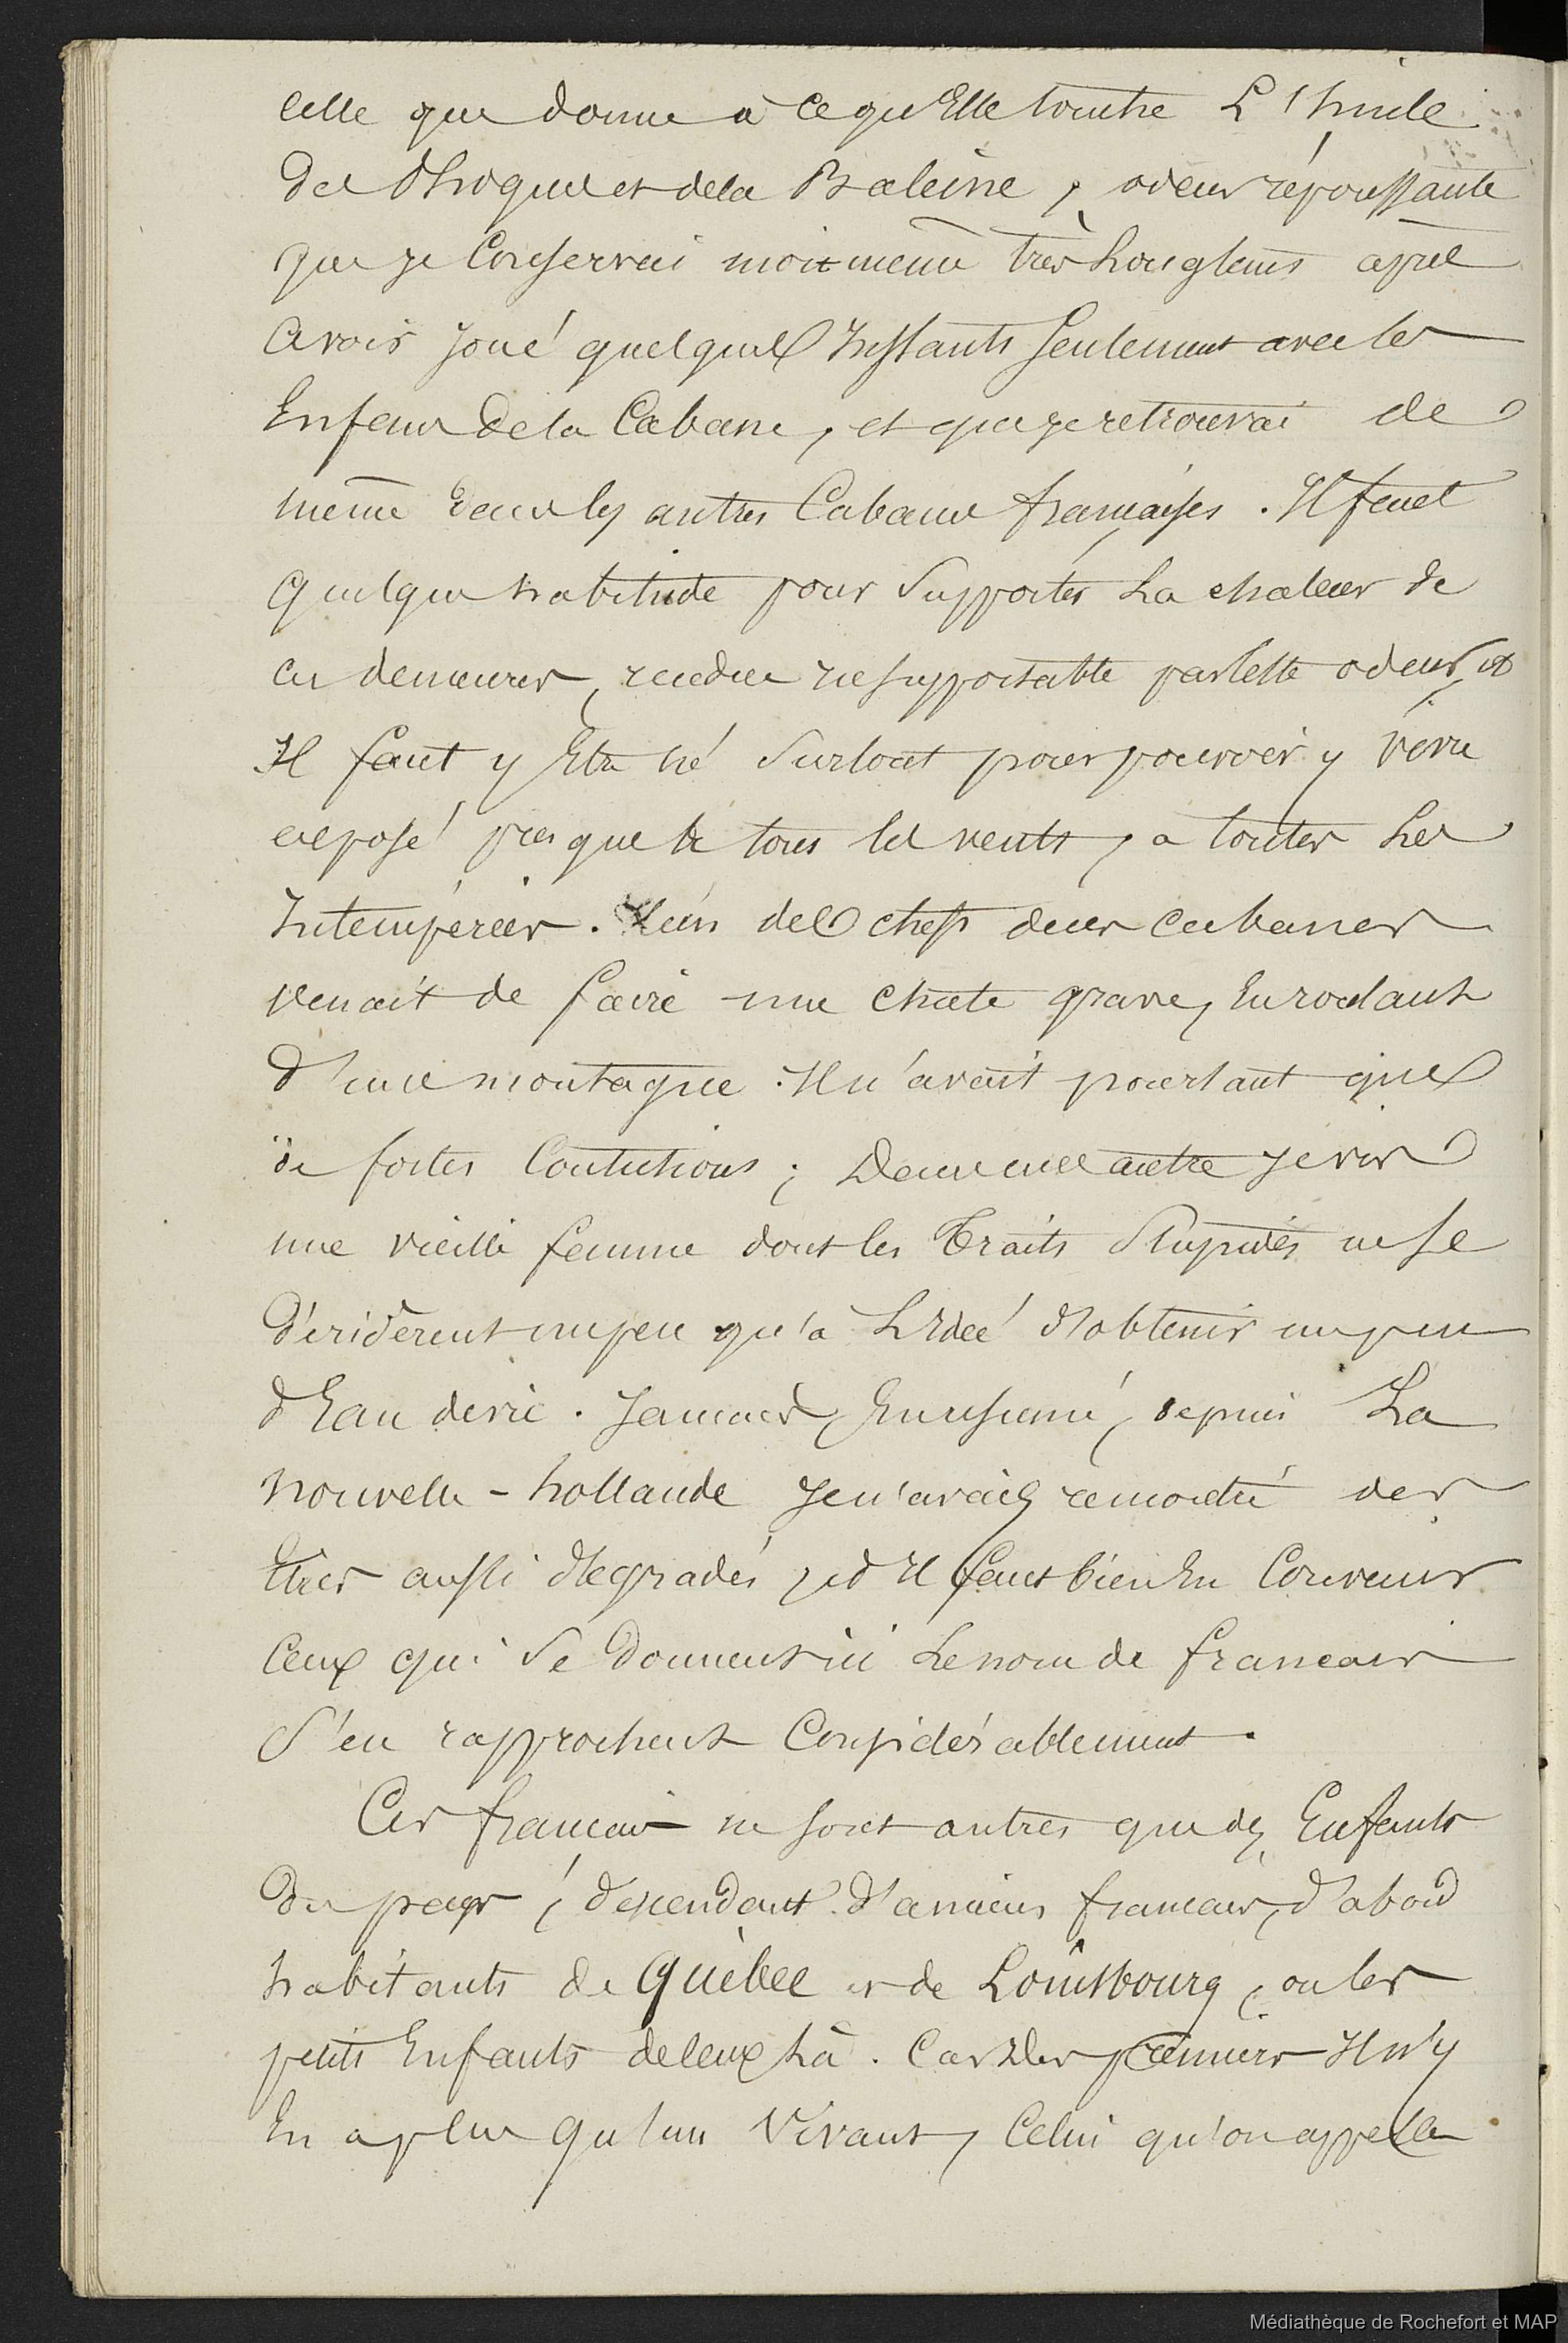 celle que donne à ce qu'Elle touche L'huile
des Phoques et de la Baleine, odeur répoussante
que je conservai moi-même très Longtems après
avoir joué quelques Instants seulement avec les
Enfans de la Cabane, et que je retrouvai de
même dans les autres Cabanes françaises. Il faut
quelque habitude pour Supporter La chaleur de
ces demeures, rendue insupportable par cette odeur, et
Il faut y Etre né Surtout pour pouvoir y vivre
exposé presque à tous les vents, a toutes Les
Intempéries. L'un des chefs de ces cabanes
venait de faire une chute grave, En roulant
d'une montagne. Il n'avait pourtant que
de fortes Contusions; Dans une autre je vis
une vieille femme dont les Traits Stupides ne se
déridèrent un peu qu'à L'Idée d'obtenir un peu
d'Eau de vie. Jamais, En résumé, depuis La
nouvelle-hollande Je n'avais rencontré des
Etres aussi dégradés, et Il faut bien En Convenir
Ceux qui Se donnent ici Le nom de francais
S'en rapprochent Considérablement.
Ces francais ne sont autres que des Enfants
du pays, descendant d'anciens francais, d'abord
habitants de Québec et de Louisbourg, ou les
petits Enfants de ceux Là. Car des premiers Il n'y
En a plus qu'un Vivant, Celui qu'on appelle
Médiathèque de Rochefort et MAP